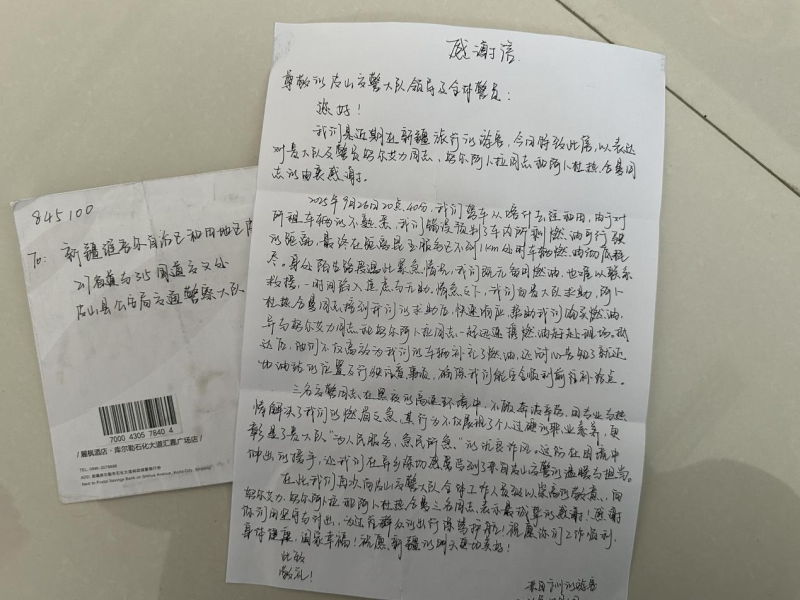 感谢信
尊敬的皮山交警大队领导及全体警员:
您好!
我们是近期在新疆旅行的旅客,今日特致此信,以表达
对贵大队及警员努尔艾力同志、努尔阿卜拉同志和阿卜杜热合曼同
志的由衷感谢。
2025年9月26日20点40分,我们驾车从喀什去往和田,由于对
所租车辆的不熟悉,我们错误预判了车内所剩燃油可行驶
的距离,最终在距离昆玉服务区不到1km处时车辆燃油彻底耗
尽。身处陌生路段遇此紧急情况,我们既无备用燃油,也难以联系
救援,一时间陷入焦虑与无助。情急之下,我们向贵大队求助,阿卜
杜热合曼同志接到我们的求助后,快速响应,帮助我们购买燃油,
并与努尔艾力同志和努尔阿卜拉同志一起迅速携燃油赶赴现场。抵
达后,他们不仅高效为我们的车辆补充了燃油,还耐心告知了就近
加油站的位置及行驶注意事项,确保我们能安全顺利前往补给点。
三名交警同志,在黑夜的高速环境中,不顾奔波辛苦,用专业与热
情解决了我们的燃眉之急,其行为不仅展现了个人过硬的职业素养,更
彰显了贵大队“为人民服务,急民所急”的优良作风。这份在困境中
伸出的援手,让我们在异乡深切感受到了来自皮山交警的温暖与担当。
在此我们再次向皮山交警大队全体工作人员致以崇高的敬意,向
努尔艾力、努尔阿卜拉和阿卜杜热合曼三名同志表示最诚挚的感谢!感谢
你们的坚守与付出,为过往群众的出行保驾护航!祝愿你们工作顺利,
身体健康,阖家幸福!祝愿新疆的明天更加美好!
此致
敬礼!
845100
To: 新疆维吾尔自治区和田地区皮
省道与315国道交叉处
皮山县公安局交通警察大队
7000 4305 7840 4
/ 麗枫酒店·库尔勒石化大道汇嘉广场店 /